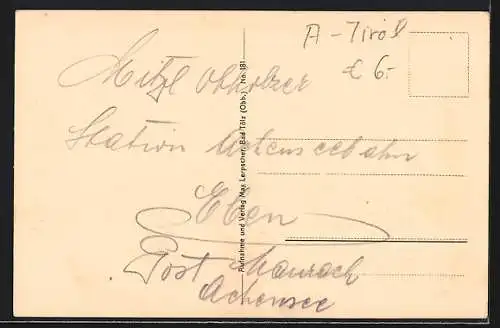 A - Tirol
€ 6.-
Mitzl Obholzer
Station Achenseebahn
Eben
Post Maurach
Achensee
Aufnahme und Verlag Max Lerpscher, Bad Tölz (Obb.) No. 181